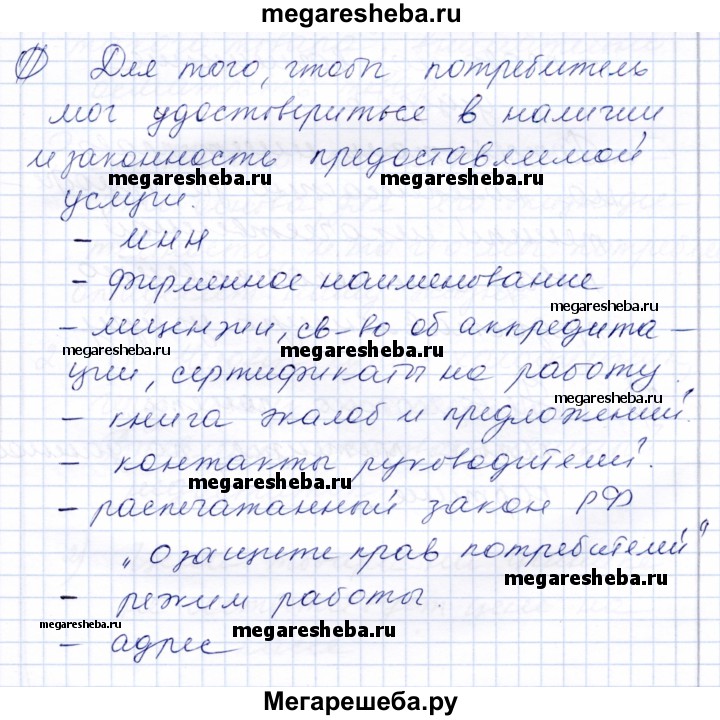 megaresheba.ru
1) Для того, чтобы потребитель
мог удостовериться в наличии
и законность предоставляемой
megaresheba.ru megaresheba.ru
услуги.
- ИНН
- фирменное наименование
megaresheba.ru
- лицензии, св-во об аккредита -
megaresheba.ru megaresheba.ru
ции, сертификаты на работу.
megaresheba.ru
- книга жалоб и предложений.
- контакты руководителей.
megaresheba.ru
- распечатанный закон РФ
„О защите прав потребителей"
megaresheba.ru
- режим работы.
megaresheba.ru megaresheba.ru
- адрес
Мегарешеба.ру